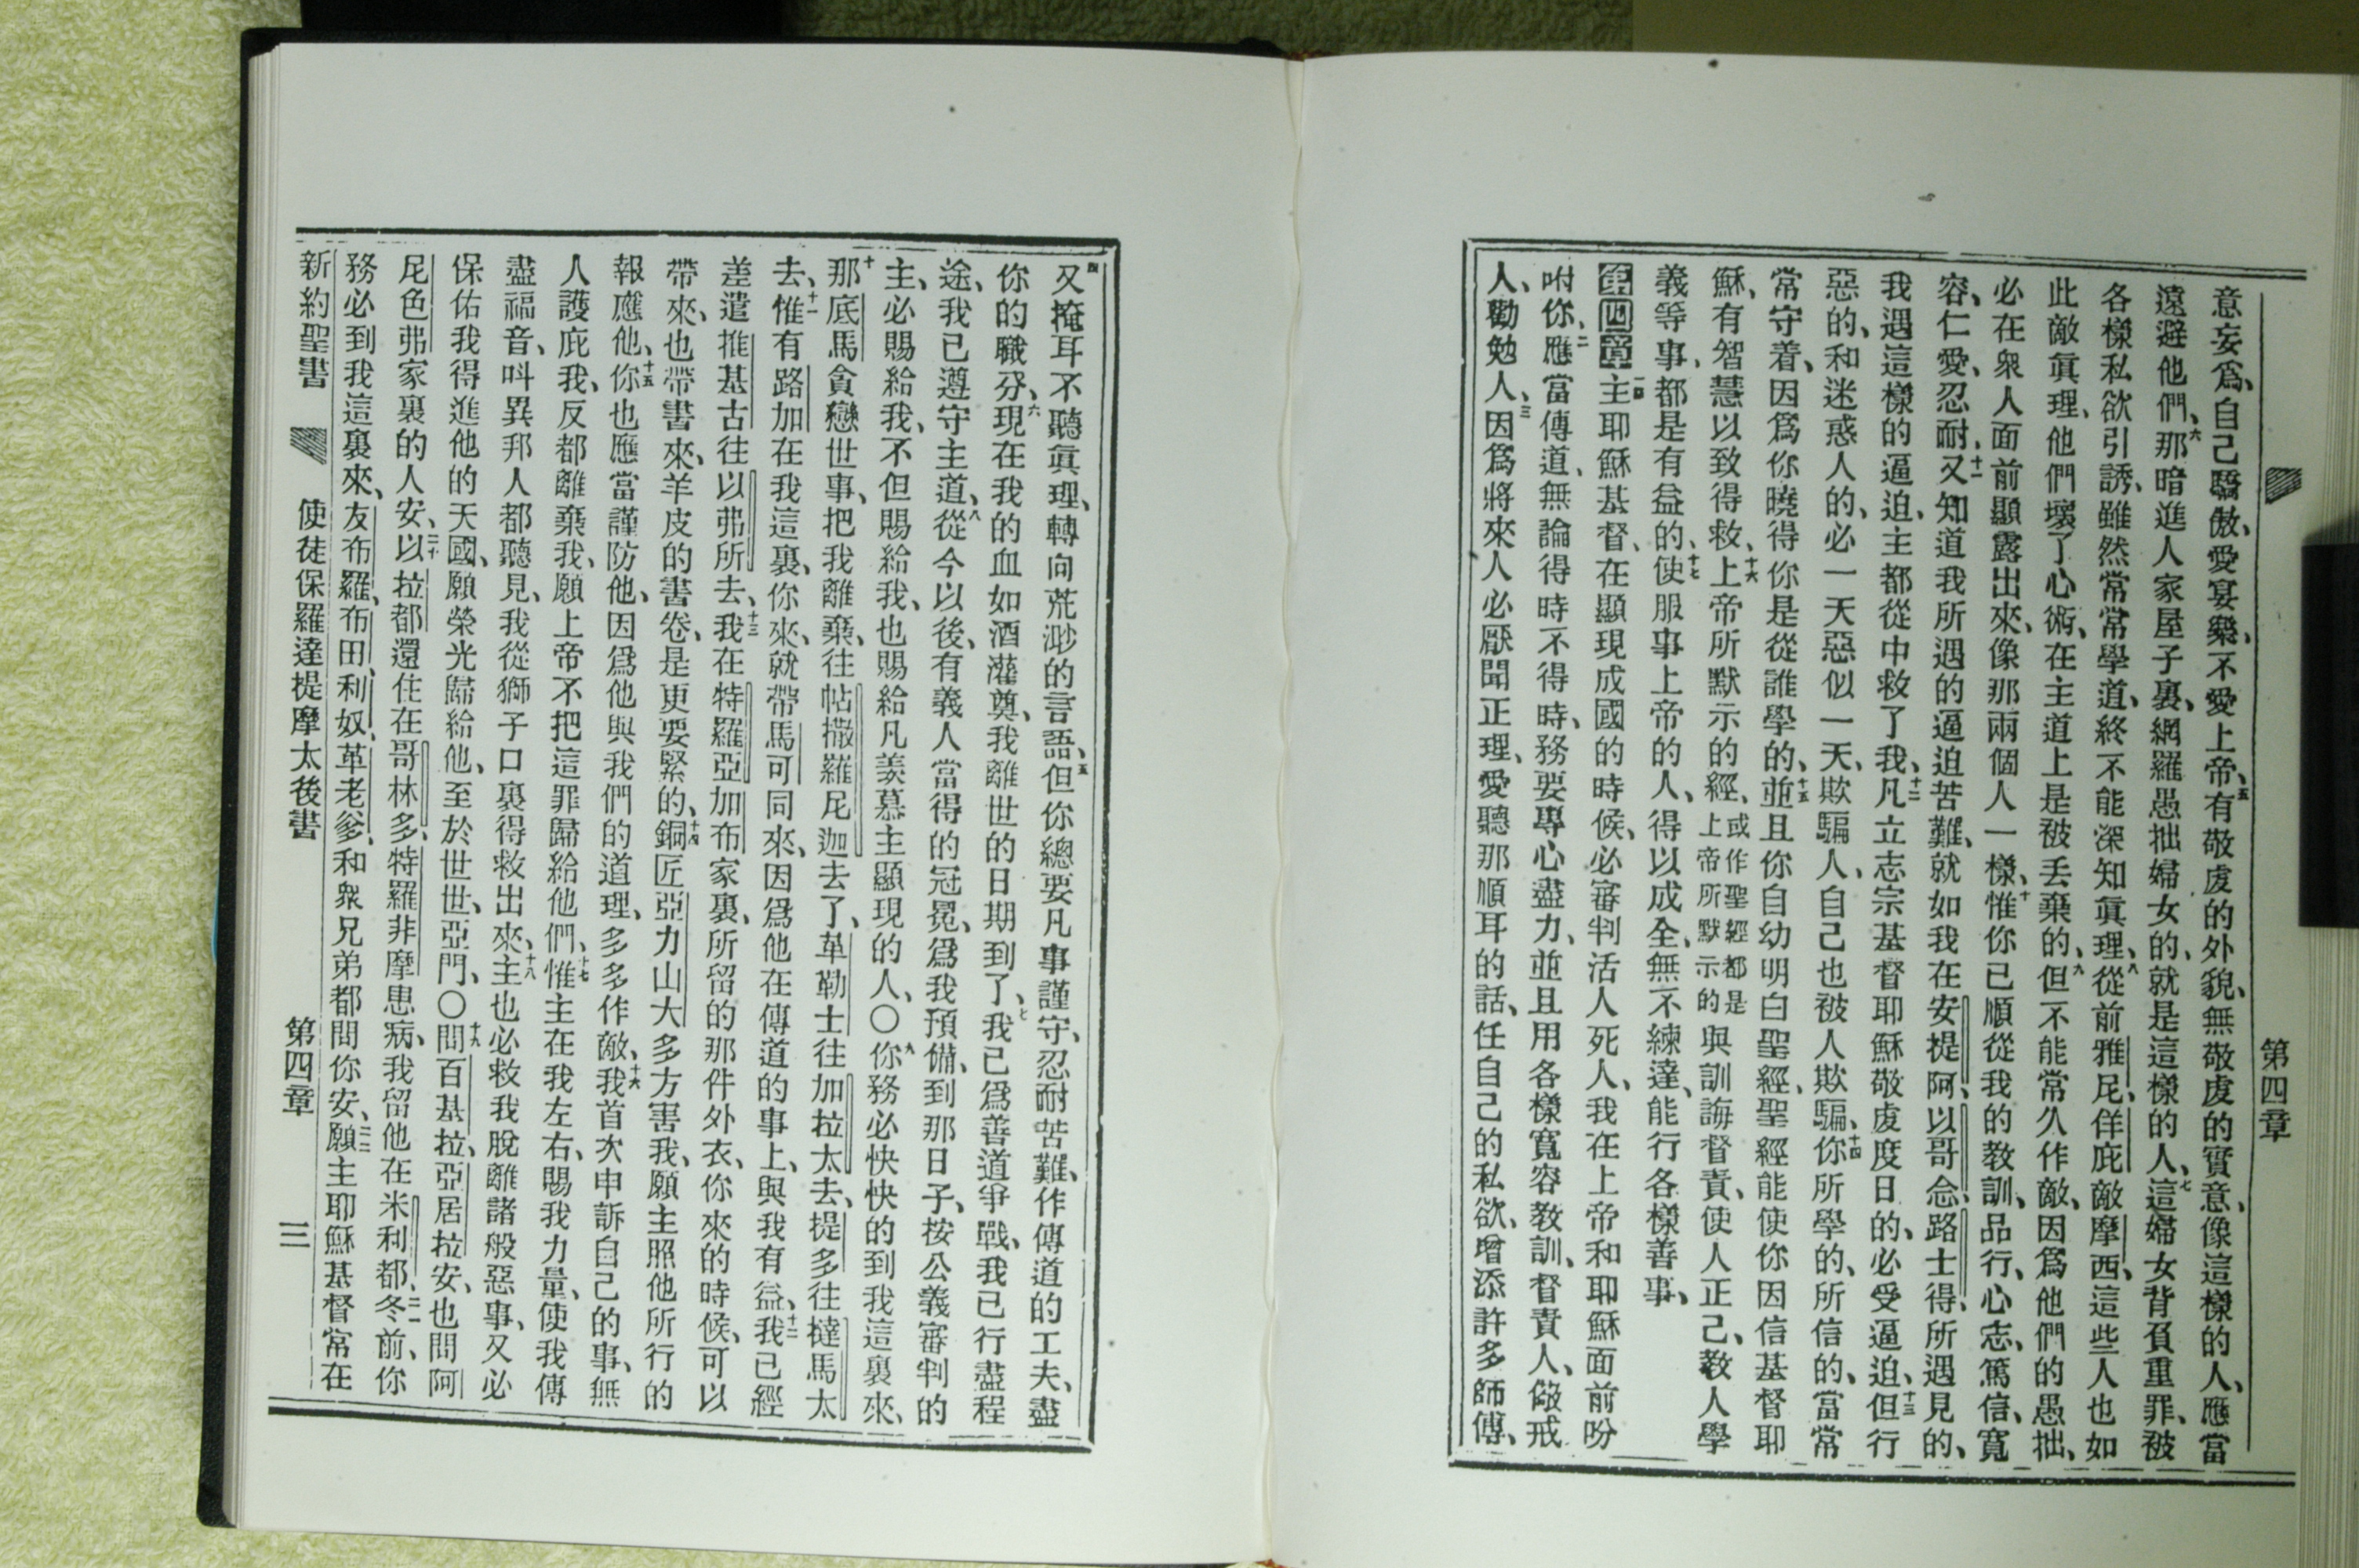 第四章
意妄爲、自己驕傲、愛宴樂、不愛上帝、五有敬虔的外貌、無敬虔的實意、像這樣的人、應當
遠避他們、六那暗進人家屋子裏、網羅愚拙婦女的、就是這樣的人、七這婦女背負重罪、被
各樣私欲引誘、雖然常常學道、終不能深知眞理、八從前雅尼佯庇敵摩西、這些人也如
此敵眞理、他們壞了心術、在主道上是被丟棄的、九但不能常久作敵、因爲他們的愚拙、
必在衆人面前顯露出來、像那兩個人一樣、十惟你已順從我的教訓、品行、心志、篤信、寬
容、仁愛、忍耐、十一又知道我所遇的逼迫苦難、就如我在安提阿、以哥念、路士得、所遇見的、
我遇這樣的逼迫、主都從中救了我、十二凡立志宗基督耶穌敬虔度日的、必受逼迫、十三但行
惡的、和迷惑人的、必一天惡似一天、欺騙人、自己也被人欺騙、十四你所學的、所信的、當常
常守着、因爲你曉得你是從誰學的、十五並且你自幼明白聖經、聖經能使你因信基督耶
穌、有智慧以致得救、十六上帝所默示的經、或作聖經都是上帝所默示的與訓誨督責、使人正己、教人學
義等事、都是有益的、十七使服事上帝的人、得以成全、無不練達、能行各樣善事、
第四章一主耶穌基督、在顯現成國的時候、必審判活人死人、我在上帝和耶穌面前吩
咐你、二應當傳道、無論得時不得時、務要專心盡力、並且用各樣寬容教訓、督責人、儆戒
人、勸勉人、三因爲將來人必厭聞正理、愛聽那順耳的話、任自己的私欲、增添許多師傅、
四又掩耳不聽眞理、轉向荒渺的言語、五但你總要凡事謹守、忍耐苦難、作傳道的工夫、盡
你的職分、六現在我的血如酒灌奠、我離世的日期到了、七我已爲善道爭戰、我已行盡程
途、我已遵守主道、八從今以後、有義人當得的冠冕、爲我預備、到那日子、按公義審判的
主、必賜給我、不但賜給我、也賜給凡羨慕主顯現的人、〇九你務必快快的到我這裏來、
十那底馬貪戀世事、把我離棄、往帖撒羅尼迦去了、革勒士往加拉太去、提多往撻馬太
去、十一惟有路加在我這裏、你來、就帶馬可同來、因爲他在傳道的事上、與我有益、十二我已經
差遣推基古往以弗所去、十三我在特羅亞加布家裏、所留的那件外衣、你來的時候、可以
帶來、也帶書來、羊皮的書卷、是更要緊的、十四銅匠亞力山大多方害我、願主照他所行的
報應他、十五你也應當謹防他、因爲他與我們的道理、多多作敵、十六我首次申訴自己的事、無
人護庇我、反都離棄我、願上帝不把這罪歸給他們、十七惟主在我左右、賜我力量、使我傳
盡福音、呌異邦人都聽見、我從獅子口裏得救出來、十八主也必救我脫離諸般惡事、又必
保佑我得進他的天國、願榮光歸給他、至於世世、亞門、〇十九問百基拉、亞居拉安、也問阿
尼色弗家裏的人安、二十以拉都還住在哥林多、特羅非摩患病、我留他在米利都、二一冬前、你
務必到我這裏來、友布羅、布田、利奴、革老爹、和衆兄弟都問你安、二二願主耶穌基督常在
新約聖書 使徒保羅達提摩太後書 第四章 三